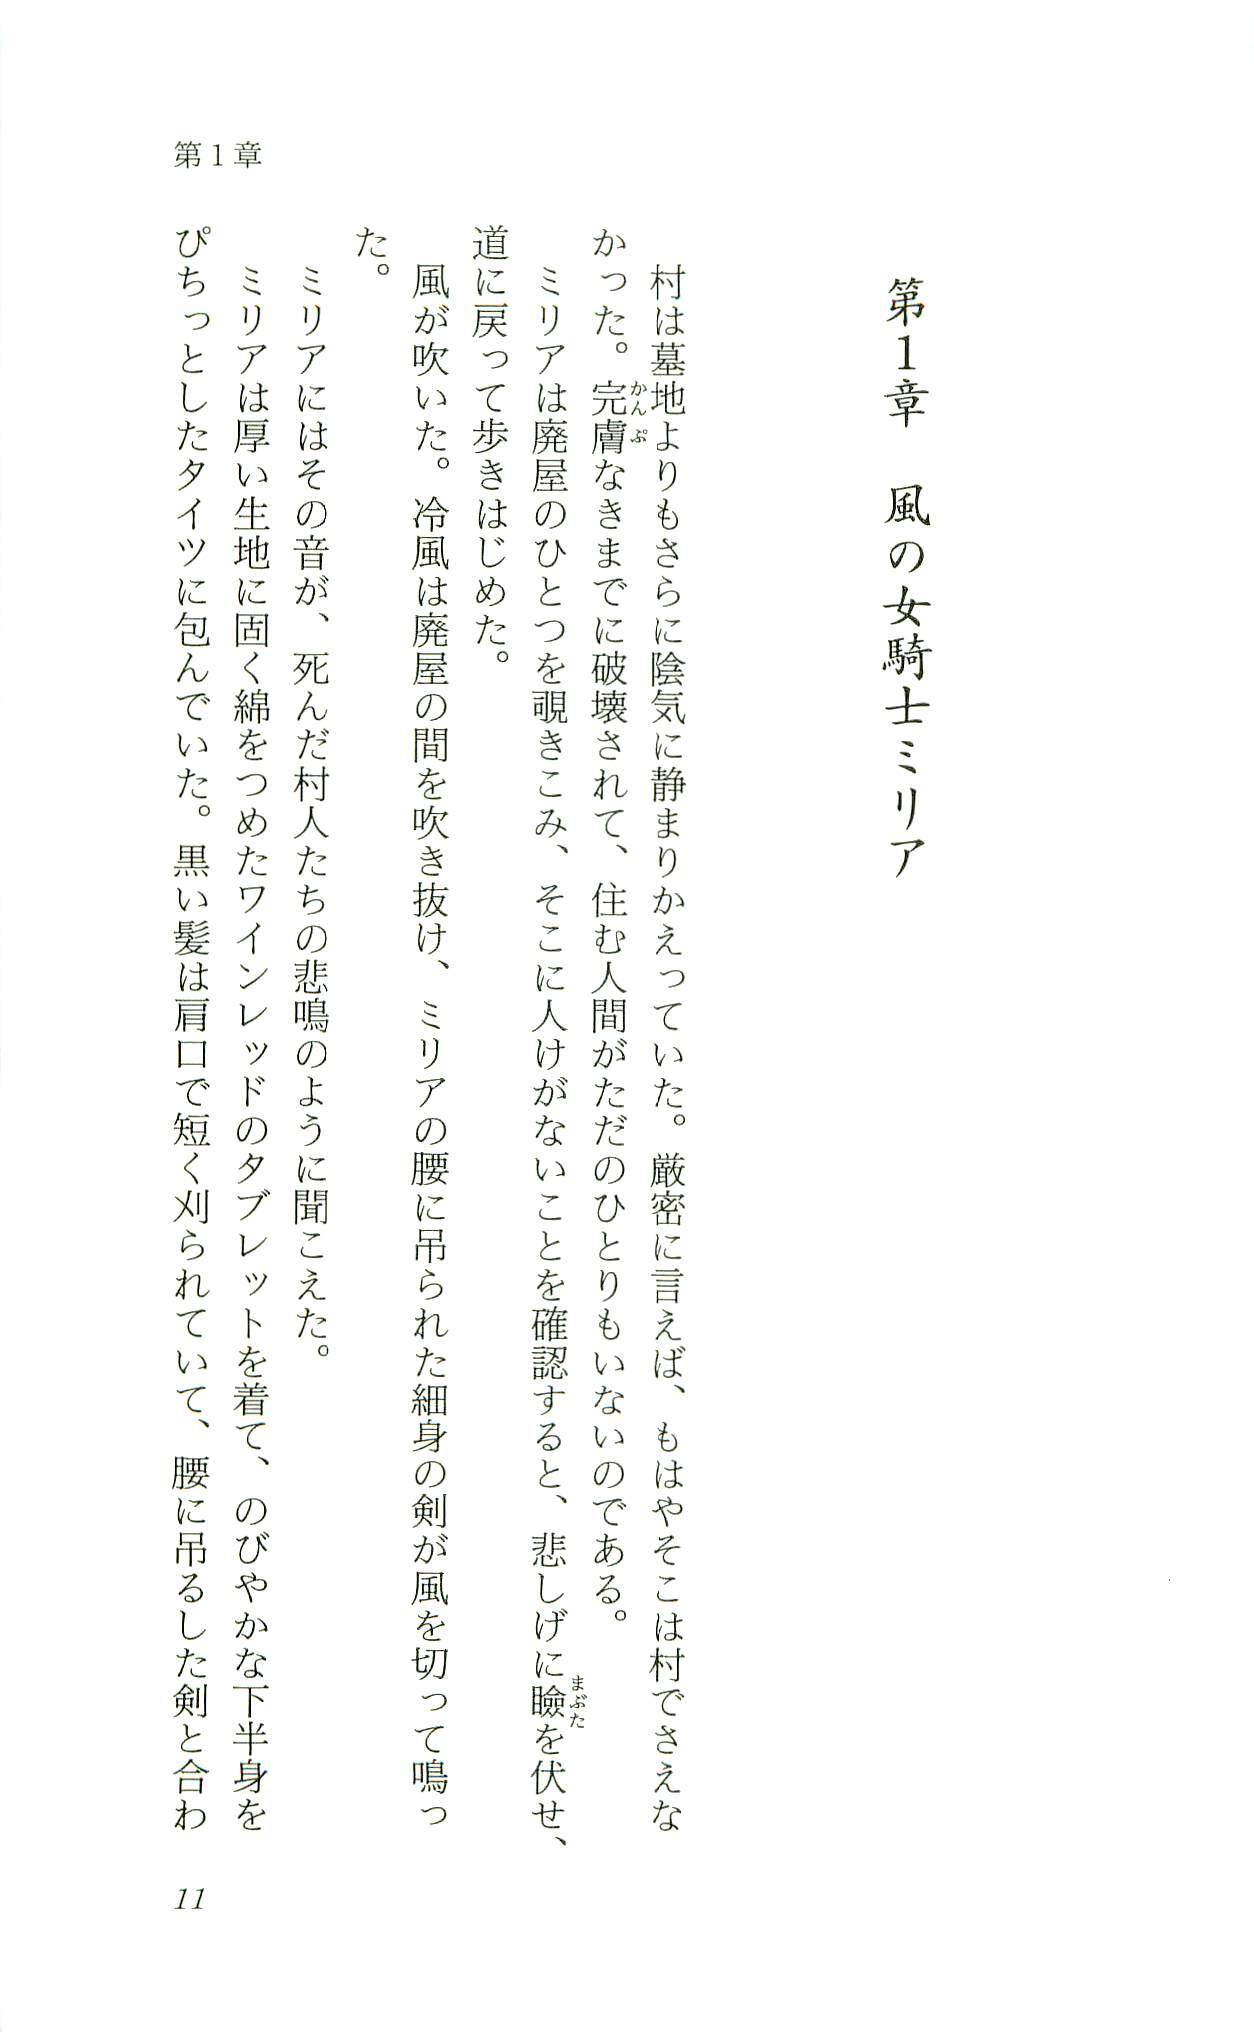 第1章
第1章　風の女騎士ミリア
　村は墓地よりもさらに陰気に静まりかえっていた。厳密に言えば、もはやそこは村でさえな
かった。完膚なきまでに破壊されて、住む人間がただのひとりもいないのである。
　ミリアは廃屋のひとつを覗きこみ、そこに人けがないことを確認すると、悲しげに瞼を伏せ、
道に戻って歩きはじめた。
　風が吹いた。冷風は廃屋の間を吹き抜け、ミリアの腰に吊られた細身の剣が風を切って鳴っ
た。
　ミリアにはその音が、死んだ村人たちの悲鳴のように聞こえた。
　ミリアは厚い生地に固く綿をつめたワインレッドのタブレットを着て、のびやかな下半身を
ぴちっとしたタイツに包んでいた。黒い髪は肩口で短く刈られていて、腰に吊るした剣と合わ
11